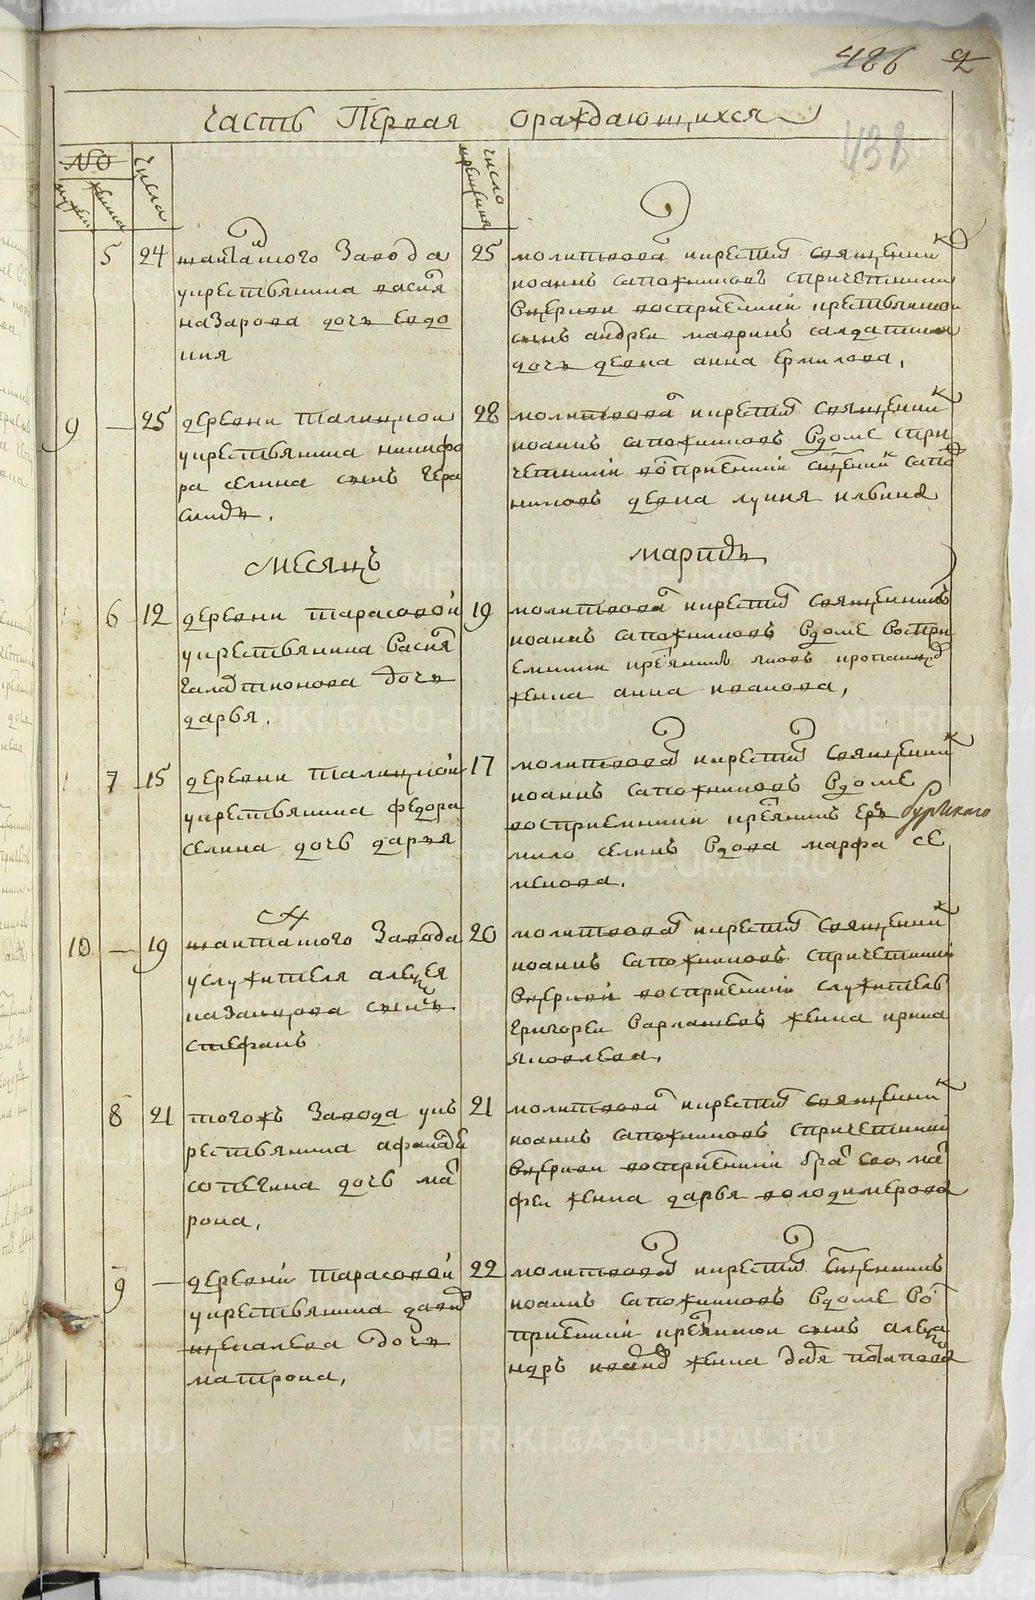 486 2
часть Первая ораждающихся
438
№
числа
число крещения
мужеск женска
5 24 шайтанского Завода
у крестьянина васи́лья
назарова дочь Евдо
кия
25 молитвовал и крестил священник
иоаннъ сапожниковъ спричетники
въцеркви восприемники крестьянской
сынъ андреи мавринъ салдатская
дочь девка анна Ермилова,
9 — 25 деревни талицкой
у крестьянина никифо
ра селина сынъ Гера
симъ,
28 молитвовал и крестил священник
иоаннъ сапожниковъ вдоме спри
четники восприемники священник сапож
никовъ девка лукия ильина
месяцъ мартъ
6 12 деревни тарасовой
у крестьянина васи́лья
дочь
дарья,
19 молитвовал и крестил священникъ
иоаннъ сапожниковъ вдоме воспри
емники крестьянинъ яковъ
женка анна иванова,
7 15 деревни талицкой
у крестьянина федора
селина дочь дарья
17 молитвовал и крестил священник
иоаннъ сапожниковъ вдоме
восприемники крестьянинъ Ер
мило селинъ вдова марфа се
менова.
10 — 19 шайтанского Завода
у служителя алексея
казанцова сынъ
стефанъ
20 молитвовал и крестил священник
иоаннъ сапожниковъ спричетники
въцеркви восприемники служитель
григореи варлаковъ женка ирина
яковлева,
8 21 тогожъ Завода у кь
рестьянина афанасья
сопегина дочь мат
рона,
21 молитвовал и крестил священник
иоаннъ сапожниковъ спричетники
въцеркви восприемники брат ево мат
феи женка дарья володимерова
9 — деревни тарасовой
у крестьянина давида
щекалева дочь
матрона,
22 молитвовал и крестил священникъ
иоаннъ сапожниковъ вдоме вос
приемники крестьянской сынъ алекса
ндръ женка